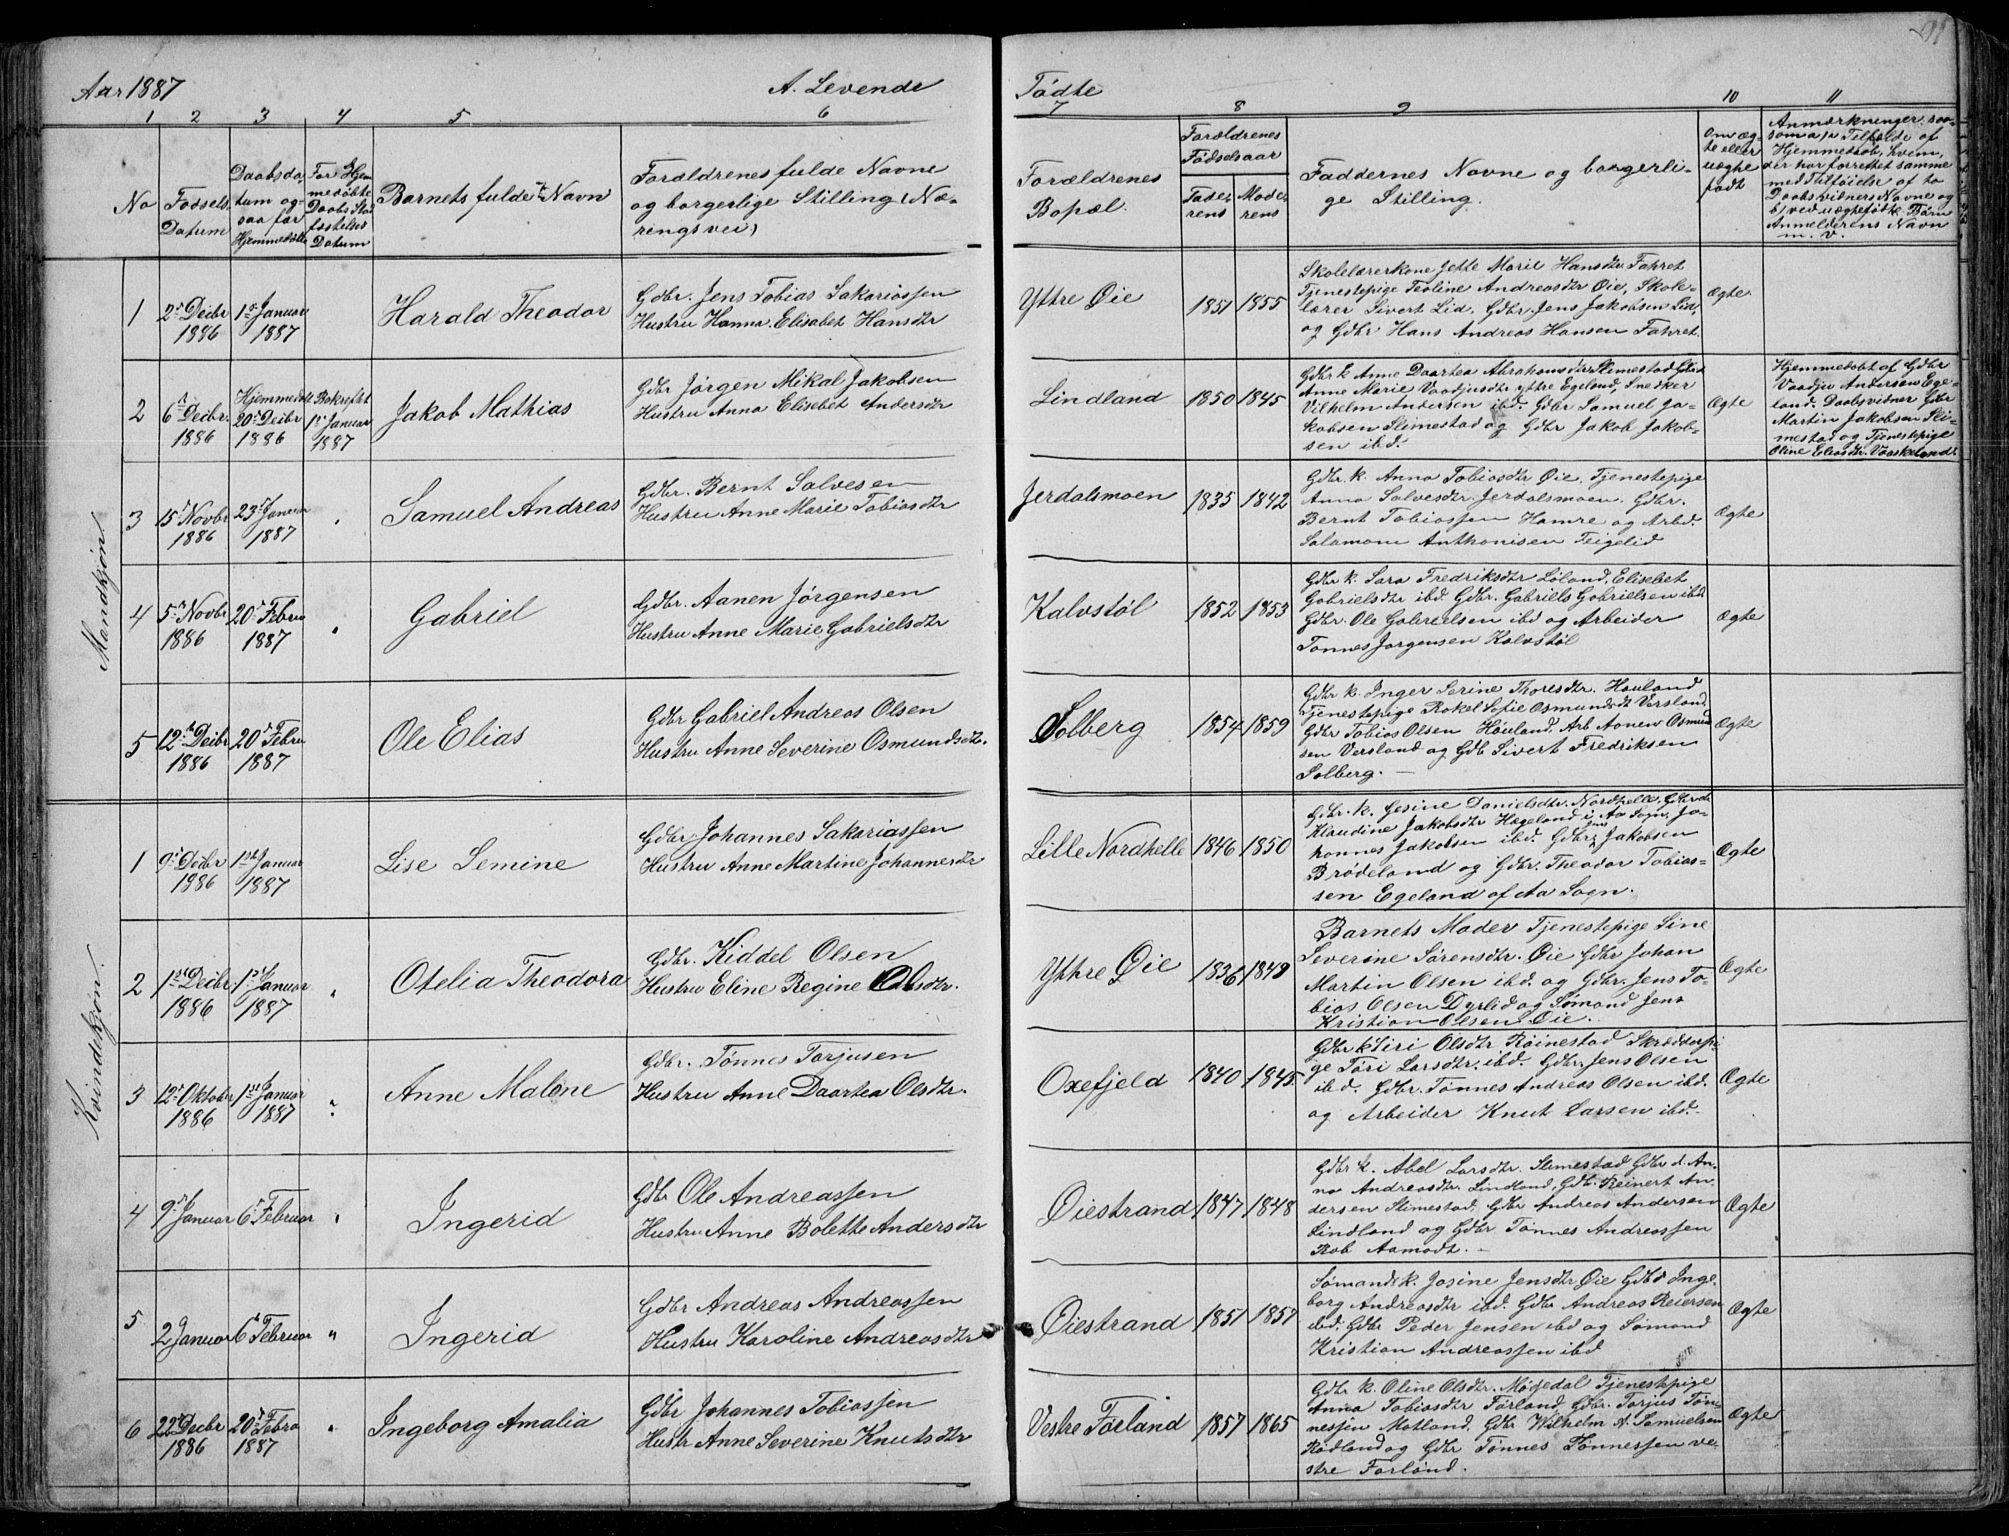 Aar 1887
A. Levende
Fødte
1 2 3 4 5 6
7 8 9 10 11
No
Fødsels Datum
Daabsdatum ogsaa før Hjemmedøbte
For Hjemmedøbte Daabs Stadfæstelses Datum
Barnets fulde Navn
Forældrenes fulde Navne
og borgerlige Stilling (Næ-
ringsvei)
Forældrenes
Bopæl.
Forældrenes
Fødselsaar
Faderens
Moderens
Faddernes Navne og borgerli-
ge Stilling.
Om ægte eller uægte født
Anmærkninger, saa-
som a) i Tilfælde af
Hjemmedaab, hvem,
der har forrettet samme
med Tilføielse af to
Daabsvidners Navne og
b) ved uægtefødte Børn
Anmelderens Navn
m. v.
Mandkjøn.
1
2 Decbr 1886
1 Januar 1887
Harald Theodor
Gdbr. Jens Tobias Sakariassen
Hustru Hanna Elisabet Hansdtr
Yttre Øie
1851 1855
Skolelærerkone Jette Marie Hansdtr Fahret
Tjenestepige Teoline Andreasdtr Øie, Skole-
lærer Sivert Lid, Gdbr Jens Jakobsen Lid,
og Gdbr Hans Andreas Hansen Fahret.
Ægte.
2
6 Decbr. 1886
Hjemmedøbt 20 Decbr 1886
Bekræftet 1 Januar 1887
Jakob Mathias
Gdbr Jørgen Mikal Jakobsen
Hustru Anna Elisebet Andersdtr
Lindland
1850 1845
Gdbr k Anne Daartea Abrahamsdtr Slimestad
Anne Marie Vaadjusdtr yttre Egeland, Snedker
Vilhelm Andersen ibd. Gdbr Samuel Ja-
kobsen Slimestad og Gdbr Jakob Jakob-
sen ibd.
Ægte
Hjemmedøbt af Gdbr
Vaadju Andersen Ege-
land. Daabsvidner Gdbr
Martin Jakobsen Sli-
mestad og Tjenestepige
Oline Eliasdtr. Vaaskeland.
3
15 Novbr 1886
23 Januar 1887
Samuel Andreas
Gdbr. Bernt Salvesen
Hustru Anne Marie Tobiasdtr
Jerdalsmoen
1835 1842
Gdbr. k. Anna Tobiasdtr Øie, Tjenestepige
Anna Salvesdtr. Jerdalsmoen. Gdbr.
Bernt Tobiassen Hamre og Arbd.
Salamon Anthonisen Teigelid
Ægte
4
5 Novbr 1886
20 Febru 1887
"
Gabriel
Gdbr. Aanen Jørgensen
Hustru Anne Marie Gabrielsdtr
Kalvstøl
1852 1853
Gdbr k. Sara Fredriksdtr Løland, Elisebet
Gabrielsdtr ibd. Gdbr. Gabriels Gabrielsen ibd.
Gdbr. Ole Gabrielsen ibd og Arbeider
Tønnes Jørgensen Kalvstøl
Ægte
5
12 Decbr 1886
20 Febru 1887
Ole Elias
Gdbr Gabriel Andreas Olsen
Hustru Anne Severine Osmundsdtr.
Solberg
1854 1859
Gdbr k. Inger Serine Thoresdtr. Høuland
Tjenestepige Rakel Sofie Osmundsdt Versland,
Gdbr Tobias Olsen Høuland, Arb Aanen Osmund
sen Versland og Gdb Sivert Fredriksen
Solberg.
Ægte
Kvindekjøn.
1
9 Decbr 1886
1 Januar 1887
Lise Semine
Gdbr Johannes Sakariassen
Hustru Anne Martine Johannesdtr
Lille Nordhelle
1846 1850
Gdbr. k. Gesine Danielsdtr. Nordhelle.
Klaudine Jakobsdtr Hægeland i Aa Sogn, Jo-
hannes Jakobsen ibd. Gdbr Jakobsen
Brødeland og Gdbr. Theodor Tobias-
sen Egeland af Aa Sogn.
Ægte
2
1 Decbr 1886
1 Januar 1887
"
Otelia Theodora
Gdbr. Kiddel Olsen
Hustru Eline Regine Olsdtr.
Yttre Øie
1836 1849
Barnets Moder Tjenestepige Sine
Severine Sørensdtr. Øie Gdbr Johan
Martin Olsen ibd. og Gdbr. Jens To-
bias Olsen Dyrlid og Sømand Jens
Kristian Olsen Øie.
Ægte
3
12 Oktober 1886
1 Januar 1887
"
Anne Malene
Gdbr. Tønnes Torjusen
Hustru Anne Daartea Olsdtr.
Oxefjeld
1840 1845
Gdbr k Siri Olsdtr Røinestad Skrædderpi-
ge Tøri Larsdtr. ibd. Gdbr. Jens Olsen
ibd. Gdbr. Tønnes Andreas Olsen ibd.
og Arbeider Knut Larsen ibd.
Ægte
4
9 Januar
6 Februar
"
Ingerid
Gdbr Ole Andreassen
Hustru Anne Bolette Andersdtr
Øiestrand
1847 1848
Gdbr k. Abel Larsdtr. Slimestad Gdbr d. An-
na Andreasdtr. Lindland, Gdb. Reinert An-
dersen Slimestad, Gdbr Andreas Andersen
Lindland og Gdbr Tønnes Andreassen
Rob Aamodt.
Ægte
5
2 Januar
6 Februar
"
Ingerid
Gdbr Andreas Andreassen
Hustru Karoline Andreasdtr
Øiestrand
1851 1857
Sømandsk. Josine Jensdtr Øie Gdbd Inge-
borg Andreasdtr ibd. Gdbr Andreas Reiersen
ibd. Gdbr Peder Jensen ibd og Sømand
Kristian Andreassen ibd
Ægte
6
22 Decbr 1886
20 Febru 1887
"
Ingeborg Amalia
Gdbr Johannes Tobiassen
Hustr Anne Severine Knutsdtr
Vestre Førland
1857 1865
Gdbr k. Oline Olsdtr. Møgedal Tjenestepige
Anna Tobiasdtr Førland, Gbr. Torjus Tøn-
nessen Motland, Gdbr Wilhelm A. Samuelsen
Rødland og Gdbr Tønnes Tønnessen ve-
stre Førland.
Ægte